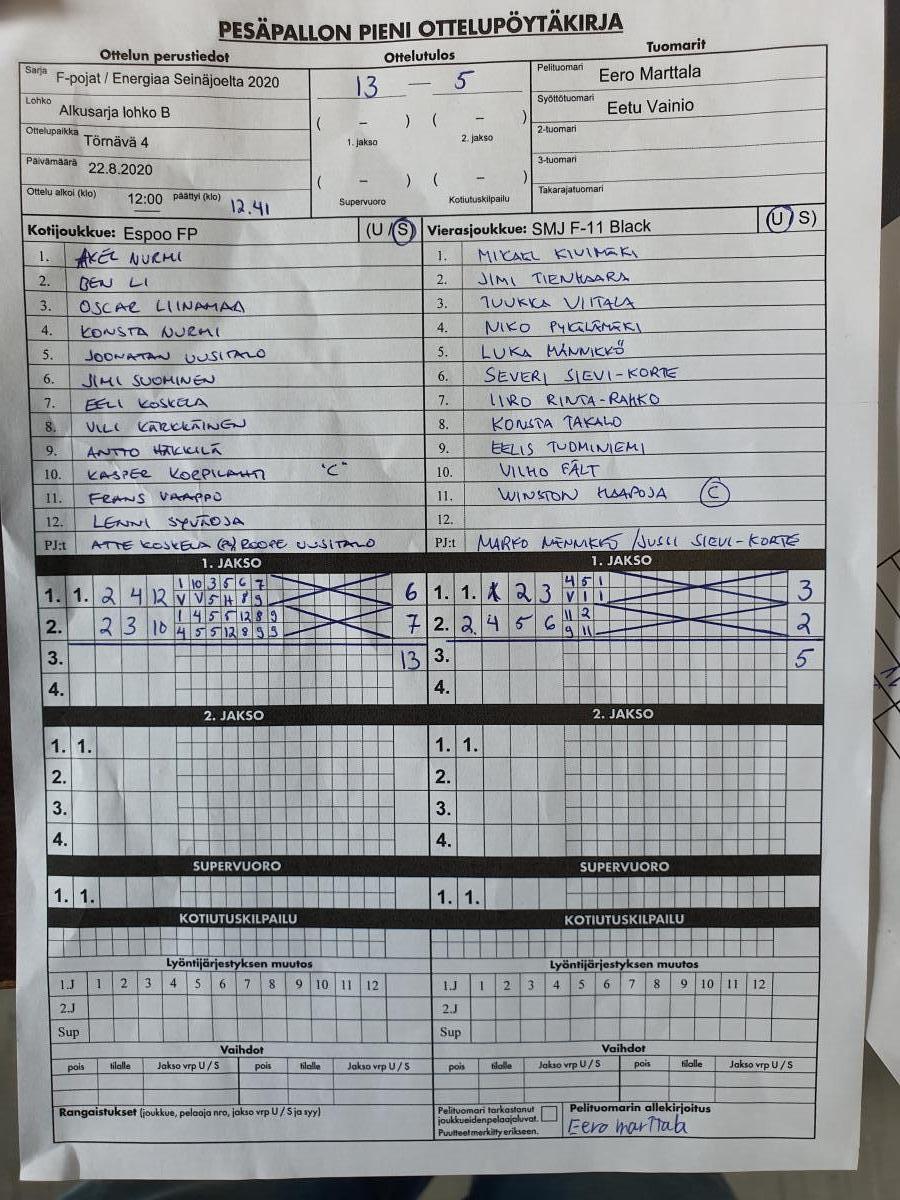 PESÄPALLON PIENI OTTELUPÖYTÄKIRJA
Ottelun perustiedot
Ottelutulos
Tuomarit
Sarja F-pojat / Energiaa Seinäjoelta 2020
Lohko Alkusarja lohko B
Ottelupaikka Törnävä 4
Päivämäärä 22.8.2020
Ottelu alkoi (klo) 12:00 päättyi (klo) 12.41
13 — 5
( – ) ( – )
1. jakso 2. jakso
( – ) ( – )
Supervuoro Kotiutuskilpailu
Pelituomari Eero Marttala
Syöttötuomari Eetu Vainio
2-tuomari
3-tuomari
Takarajatuomari
Kotijoukkue: Espoo FP (U / S)
1. AXEL NURMI
2. BEN LI
3. OSCAR LIINAMAA
4. KONSTA NURMI
5. JOONATAN UUSITALO
6. JIMI SUOMINEN
7. EELI KOSKELA
8. VILI KÄRKKÄINEN
9. ANTTO HÄKKILÄ
10. KASPER KORPILAHTI "C"
11. FRANS VAAPPO
12. LENNI SYVÄOJA
PJ:t ATTE KOSKELA (PJ) ROOPE UUSITALO
Vierasjoukkue: SMJ F-11 Black (U / S)
1. MIKAEL KIVIMÄKI
2. JIMI TIENHAARA
3. JUUKKA VIITALA
4. NIKO PYKÄLÄMÄKI
5. LUKA MÄNNIKKÖ
6. SEVERI SIEVI-KORTE
7. IIRO RINTA-RAHKO
8. KONSTA TAKALO
9. EELIS TUOMINIEMI
10. VILHO FÄLT
11. WINSTON HAAPOJA C
12.
PJ:t MARKO MENNIKKÖ / JUSSI SIEVI-KORTE
1. JAKSO
1. 1. 2 4 12 1 10 3 5 6 7 6
V V 5 11 8 9
2. 2 3 10 1 4 5 5 12 8 9 7
4 5 5 12 8 9 9
3. 13
4.
1. JAKSO
1. 1. 1 2 3 4 5 1 3
V 1 1
2. 2. 4 5 6 11 2 2
9 11
3. 5
4.
2. JAKSO
1. 1.
2.
3.
4.
2. JAKSO
1. 1.
2.
3.
4.
SUPERVUORO
1. 1.
SUPERVUORO
1. 1.
KOTIUTUSKILPAILU
KOTIUTUSKILPAILU
Lyöntijärjestyksen muutos
1.J 1 2 3 4 5 6 7 8 9 10 11 12
2.J
Sup
Lyöntijärjestyksen muutos
1.J 1 2 3 4 5 6 7 8 9 10 11 12
2.J
Sup
Vaihdot
pois tilalle Jakso vrp U / S pois tilalle Jakso vrp U / S
Vaihdot
pois tilalle Jakso vrp U / S pois tilalle Jakso vrp U / S
Rangaistukset (joukkue, pelaaja nro, jakso vrp U / S ja syy)
Pelituomari tarkastanut
joukkueidenpelaajaluvat.
Puutteet merkitty erikseen.
Pelituomarin allekirjoitus
Eero marttala